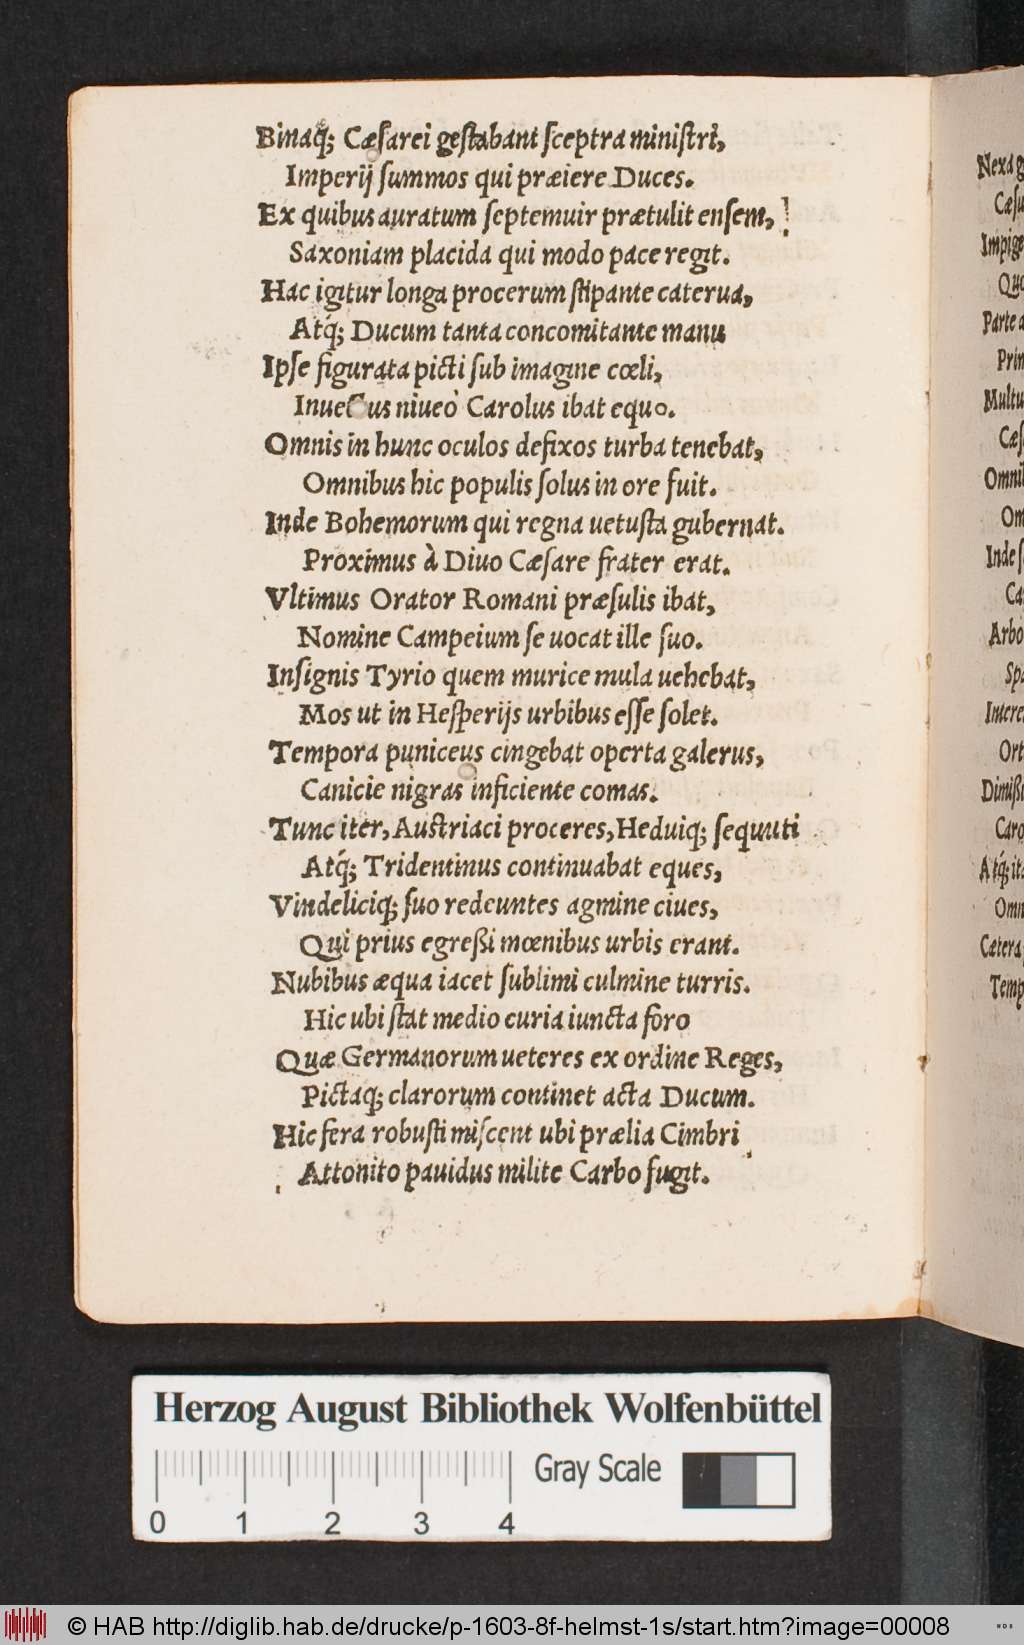 Binaq́; Cæſarei geſtabant ſceptra miniſtri,
Imperij ſummos qui præiere Duces.
Ex quibus auratum ſeptemuir prætulit enſem,
Saxoniam placida qui modo pace regit.
Hac igitur longa procerum ſtipante caterua,
Atq́; Ducum tanta concomitante manu
Ipſe figurata picti ſub imagine cœli,
Inuectus niueo Carolus ibat equo.
Omnis in hunc oculos defixos turba tenebat,
Omnibus hic populis ſolus in ore fuit.
Inde Bohemorum qui regna uetuſta gubernat.
Proximus à Diuo Cæſare frater erat.
Vltimus Orator Romani præſulis ibat,
Nomine Campeium ſe uocat ille ſuo.
Inſignis Tyrio quem murice mula uehebat,
Mos ut in Heſperijs urbibus eſſe ſolet.
Tempora puniceus cingebat operta galerus,
Canicie nigras inficiente comas.
Tunc iter, Auſtriaci proceres, Heduiq; ſequuti
Atq́; Tridentinus continuabat eques,
Vindeliciq; ſuo redeuntes agmine ciues,
Qui prius egreßi mœnibus urbis erant.
Nubibus æqua iacet ſublimi culmine turris.
Hic ubi ſtat medio curia iuncta foro
Quæ Germanorum ueteres ex ordine Reges,
Pictaq; clarorum continet acta Ducum.
Hic fera robuſti miſcent ubi prælia Cimbri
Attonito pauidus milite Carbo fugit.
Nexa g
Cæſu
Impige
Quo
Parte a
Prin
Multu
Cæſ
Omnib
Om
Inde ſ
Ca
Arbo
Spa
Intere
Ort
Dimißi
Caro
Atq́; ita
Omn
Cætera
Temp
Herzog August Bibliothek Wolfenbüttel
Gray Scale
0 1 2 3 4
© HAB http://diglib.hab.de/drucke/p-1603-8f-helmst-1s/start.htm?image=00008